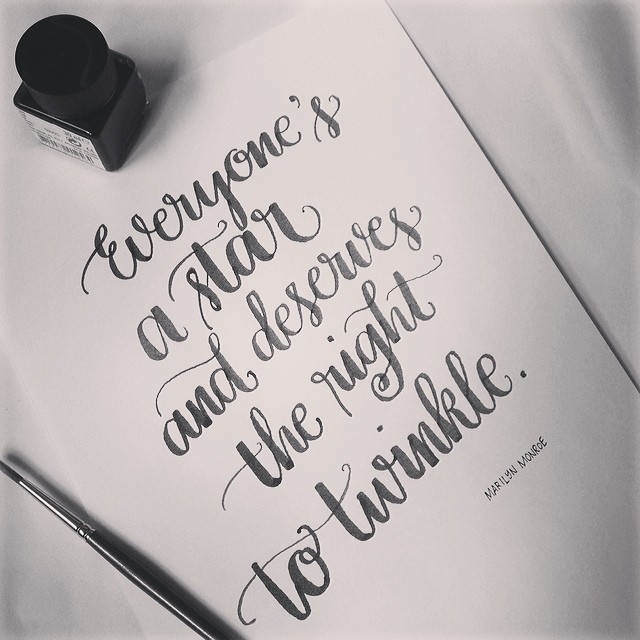 Everyone's
a star
and deserves
the right
to twinkle.
MARILYN MONROE